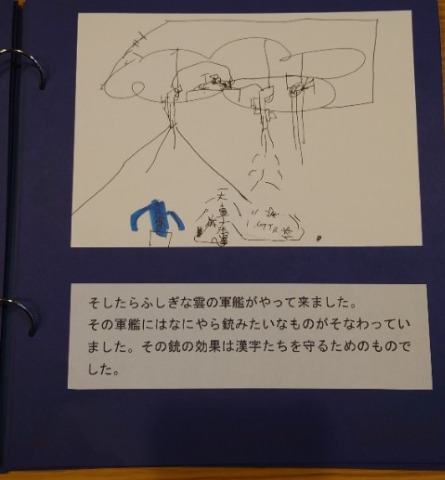 そしたらふしぎな雲の軍艦がやって来ました。
その軍艦にはなにやら銃みたいなものがそなわってい
ました。その銃の効果は漢字たちを守るためのもので
した。